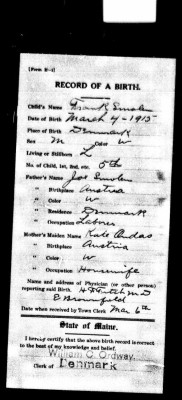 [Form B-1]
RECORD OF A BIRTH.
Child's Name Frank
Date of Birth March 4-1915
Place of Birth Denmark
Sex M Color W
Living or Stillborn L
No. of Child, 1st, 2nd, etc. 5th
Father's Name Joe
" Birthplace Austria
" Color W
" Residence Denmark
" Occupation Labner
Mother's Maiden Name Kate
" Birthplace Austria
" Color W
" Occupation Housewife
Name and address of Physician (or other person)
reporting said Birth, M D
E Brownfield
Date when received by Town Clerk Mar 6th
State of Maine.
I hereby certify that the above birth record is correct
to the best of my knowledge and belief.
William C. Ordway,
Clerk of Denmark